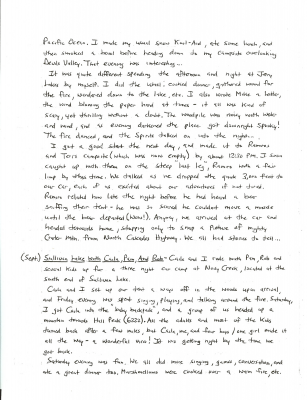 Pacific Ocean. I made my usual snow Kool-Aid, ate some lunch, and
then smoked a bowl before heading down to my campsite overlooking
Devils Valley. That evening was interesting...
It was quite different spending the afternoon and night at Jerry
Lakes by myself. I did the usual: cooked dinner, gathered wood for
the fire, wandered down to the lake, etc. I also wrote Mom a letter,
the wind blowing the paper hard at times - it all was kind of
scary, yet thrilling without a doubt. The woodpile was noisy with
and wind, and as evening darkened the place got downright spooky!
The fire danced, and the spirits talked on into the night...
I got a good start the next day, and made it to Ramon
and Tom's campsite (which was now empty) by about 12:30 PM. I soon
caught up with them on the steep last leg, Ramon with a fair
limp by other time. We talked as we dropped the quick 3,000 ft to
our car, each of us excited about our adventures it out turned.
Ramon related how late the night before he had heard a bear
sniffing their tent - he was so scared he couldn't move a muscle
until the bear departed (Wow!). Anyway, we arrived at the car and
headed towards home, stopping only to snap a picture of mighty
Gorton Mtn. from North Cascades Highway. We all had stories to tell...
(Sept) Sullivan Lake with Carla, Pam, And Rob - Carla and I rode with Pam, Rob and
several kids up for a three night car camp at Noisy Creek, located at the
south end of Sullivan Lake.
Carla and I set up our tent a ways off in the woods upon arrival,
and Friday evening was spent singing, playing, and talking around the fire. Saturday,
I got Carla into the "baby backpack", and a group of us headed up a
mountain trail to Hall Peak (6222). All the adults and most of the kids
turned back after a few miles, but Carla, me, and four boys/one girl made it
all the way - a wonderful view! It was getting right by the time we
got back.
Saturday evening was fun. We all did more singing, games, conversation, and
ate a great dinner too. Marshmallows were cooked over a warm fire, etc.